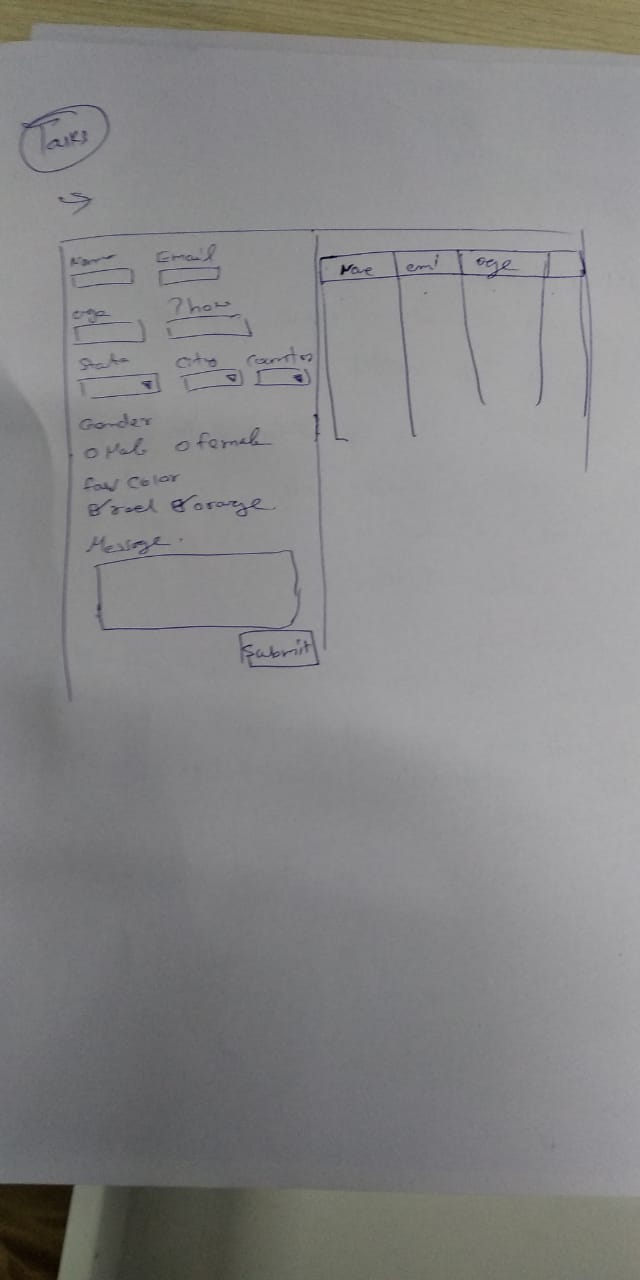 Tasks
Name Email
age Phone
State City Country
Gender
Male female
fav Color
red orange
Message.
Submit
Name emi age